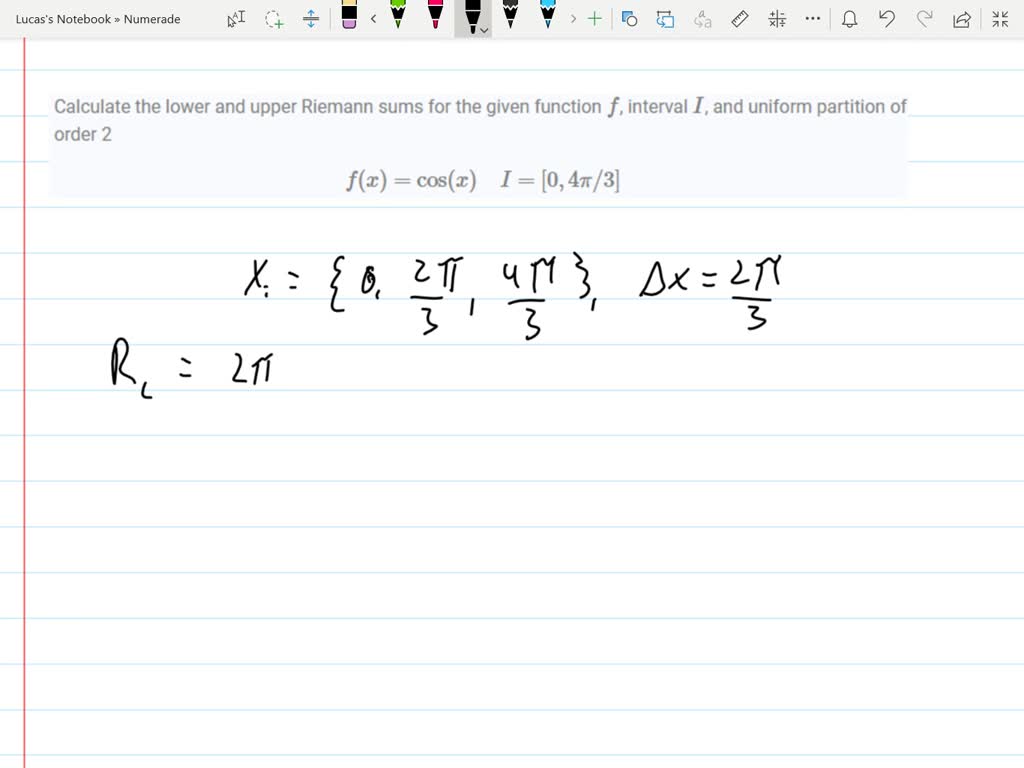 Lucas's Notebook » Numerade
Calculate the lower and upper Riemann sums for the given function f, interval I, and uniform partition of
order 2
f(x) = cos(x) I = [0, 4π/3]
Xᵢ = {0, 2π/3, 4π/3}, Δx = 2π/3
R_L = 2π